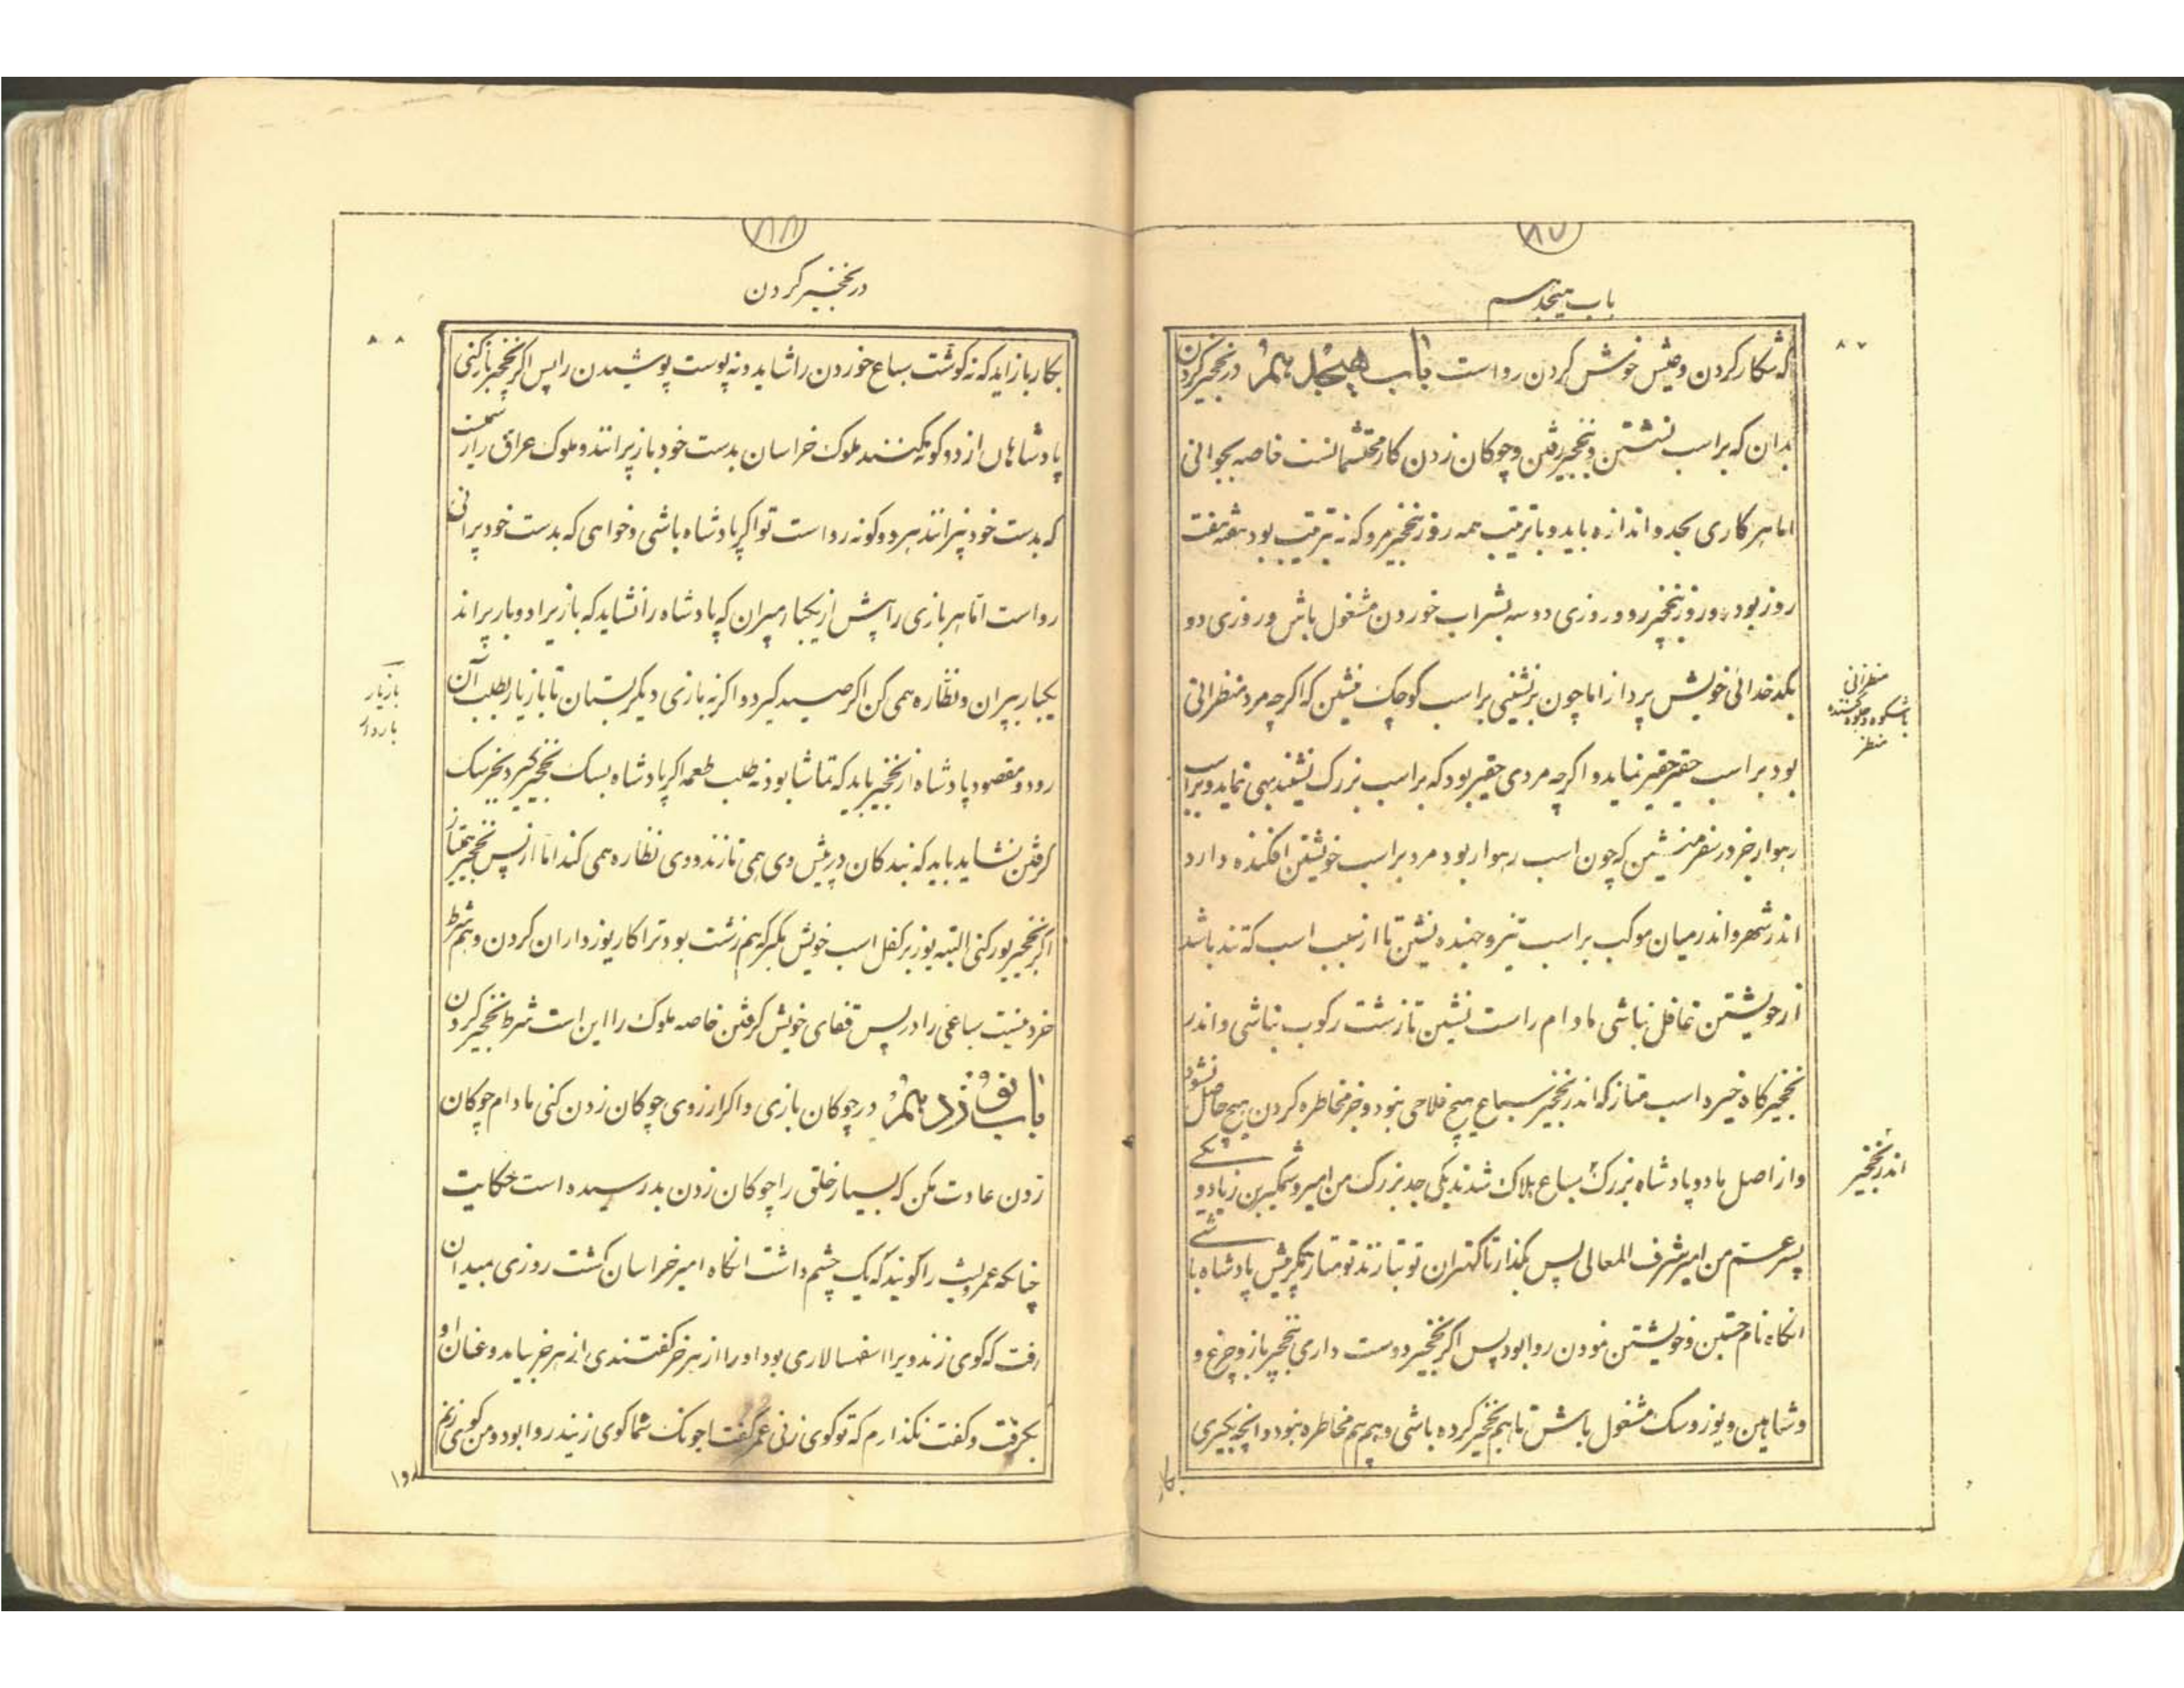 ۸۷
باب هیجدهم
۸۷
که شکار کردن و عیش خوش کردن رواست باب هیجدهم در نخجیر کردن
بدان که بر اسب نشستن و نخجیر رفتن و چوکان زدن کار محتشمانست خاصه بجوانی
اما هر کاری بحد و اندازه باید و با ترتیب همه روز نخجیر مرو که نه بترتیب بود هفته هفت
روز بود دو روز بنخجیر رو و روزی دو سه بشراب خوردن مشغول باش و روزی دو
بکدخدائی خویش پرداز اما چون برنشینی بر اسب کوچک منشین که اکرچه مرد منظرانی
منظرانی
باشکوه و جلوه کننده
منظر
بود بر اسب حقیر حقیر نماید و اکرچه مردی حقیر بود که بر اسب بزرک نشیند بهی نماید و بر اسب
رهوار جز در سفر منشین که چون اسب رهوار بود مرد بر اسب خویشتن افکنده دارد
اندر شهر و اندر میان موکب بر اسب تیز و جهنده نشین تا از سبب اسب که تند باشد
از خویشتن غافل نباشی مادام راست نشین تا زشت رکوب نباشی و اندر
نخجیرکاه خیره اسب متاز که اندر نخجیر سباع هیچ فلاحی نبود و جز مخاطره کردن هیچ حاصل نشود
اندر نخجیر
و از اصل ما دو پادشاه بزرک بسباع هلاک شدند یکی جد بزرک من امیر وشمکیر بن زیاد و یکے
پسر عم من امیر شرف المعالی پس بکذار تا کهتران تو بتازند تو متاز مکر پیش پادشاه با شے
انکاه نام جستن و خویشتن نمودن روا بود پس اکر نخجیر دوست داری بنخجیر باز و چرغ و
و شاهین و یوز و سک مشغول باش تا هم نخجیر کرده باشی و هم بیم مخاطره نبود و انچه بکیری
بکار
۸۸
در نخجیر کردن
۸۸
بکار باز اید که نه کوشت سباع خوردن را شاید و نه پوست پوشیدن را پس اکر نخجیر باز کنی
پادشاهان از دو کونه کنند ملوک خراسان بدست خود باز نپرانند و ملوک عراق را رسمست
که بدست خود بپرانند هر دو کونه رواست تو اکر پادشاه باشی و خواهی که بدست خود پرانی
رواست اما هر بازی را بیش از یکبار مپران که پادشاه را نشاید که باز را دوبار پراند
یکبار بپران و نظاره همی کن اکر صید کیرد و اکر نه بازی دیکر بستان تا بازیار بطلب آن
بازیار
رود و مقصود پادشاه از نخجیر باید که تماشا بود نه طلب طعمه اکر پادشاه بسک نخجیر کیرد بخر سک
کرفتن نشاید باید که بندکان در پیش وی همی تازند و وی نظاره همی کند اما از پس نخجیر متاز
اکر نخجیر یوز کنی البته یوز بر کفل اسب خویش مکیر که هم زشت بود ترا کار یوزداران کردن و هم شرط
خرد نیست سباعی را در پس قفای خویش کرفتن خاصه ملوک را این است شرط نخجیر کردن
باب نوزدهم در چوکان بازی و اکر ارزوی چوکان زدن کنی مادام چوکان
زدن عادت مکن که بسیار خلق را چوکان زدن بد رسیده است حکایت
چنانکه عمرو لیث را کویند که یک چشم داشت انکاه امیر خراسان کشت روزی بمیدان
رفت که کوی زند ویرا اسفهسالاری بود او را ازهر خر کفتندی ازهر خر بیامد و عنان او
بکرفت و کفت نکذارم که تو کوی زنی عمر کفتا چونک شما کوی زنید روا بود و من کوی زنم
روا